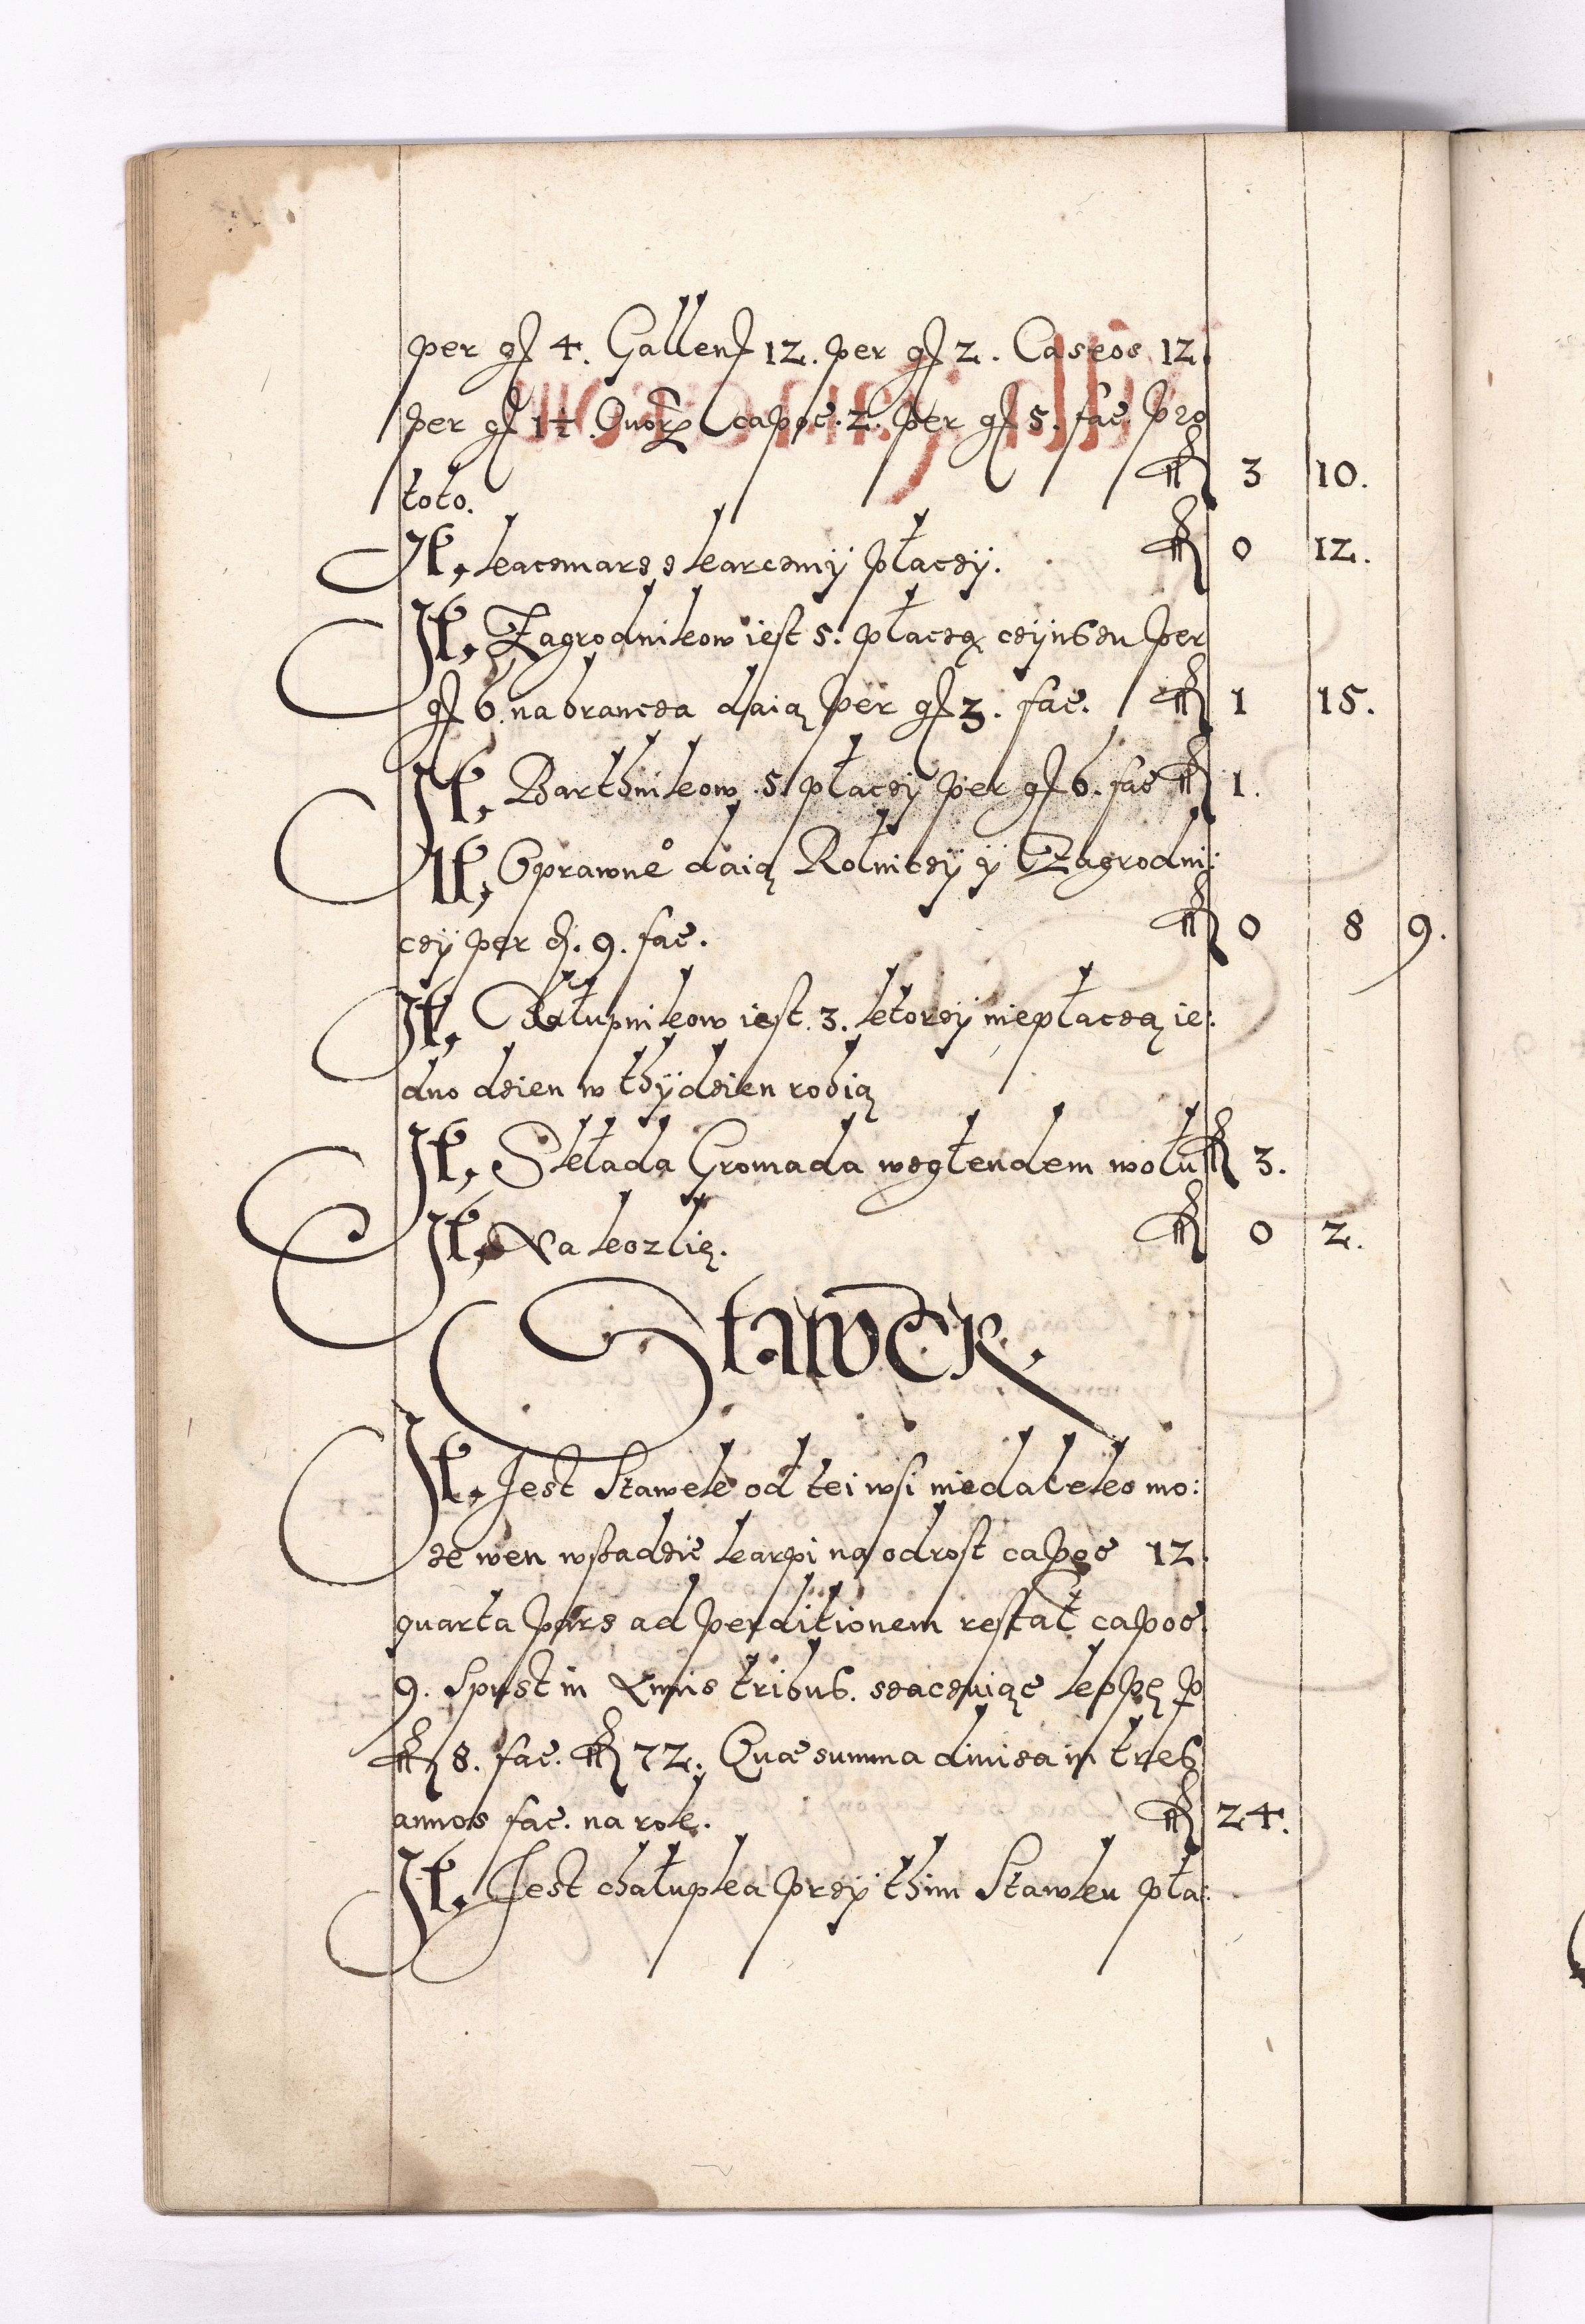 per gř 4. Gallenř 12. per gř 2. Caseos 12.
per gř 1½. Quorꝝ capoe. 2. per gř 5. fac. pro
toto. fl 3 10.
It, kaczmarz z karczmÿ płaczÿ. fl 0 12.
It, Zagrodnikow iest 5. płaczą czÿnßzu per
gř 6. na brancza daią per gř 3. fac. fl 1 15.
It, Barthnikow 5. płaczÿ per gř 6. fac fl 1.
It, Oprawne daią Rolniczÿ ÿ Zagrodni:
czÿ per d. 9. fac. fl 0 8 9.
It, Chałupnikow iest. 3. ktorzÿ niepłaczą ie:
dno dzien w thÿdzien robią
It, Składa Gromada wzglendem wołu fl 3.
It, Na kozlię. fl 0 2.
Stawek.
It, Jest Stawek od tei wsi niedaleko mo:
ze wen wsadzić karpi na odrost capoe 12.
quarta pars ad perditionem restat capoe.
9. Spust in Annis tribuß. szaczuiąc kopę p
fl 8. fac. fl 72. Quæ summa diuisa in treß
annos fac. na rok. fl 24.
It, Jest chałupka przÿ thim Stawku pła: